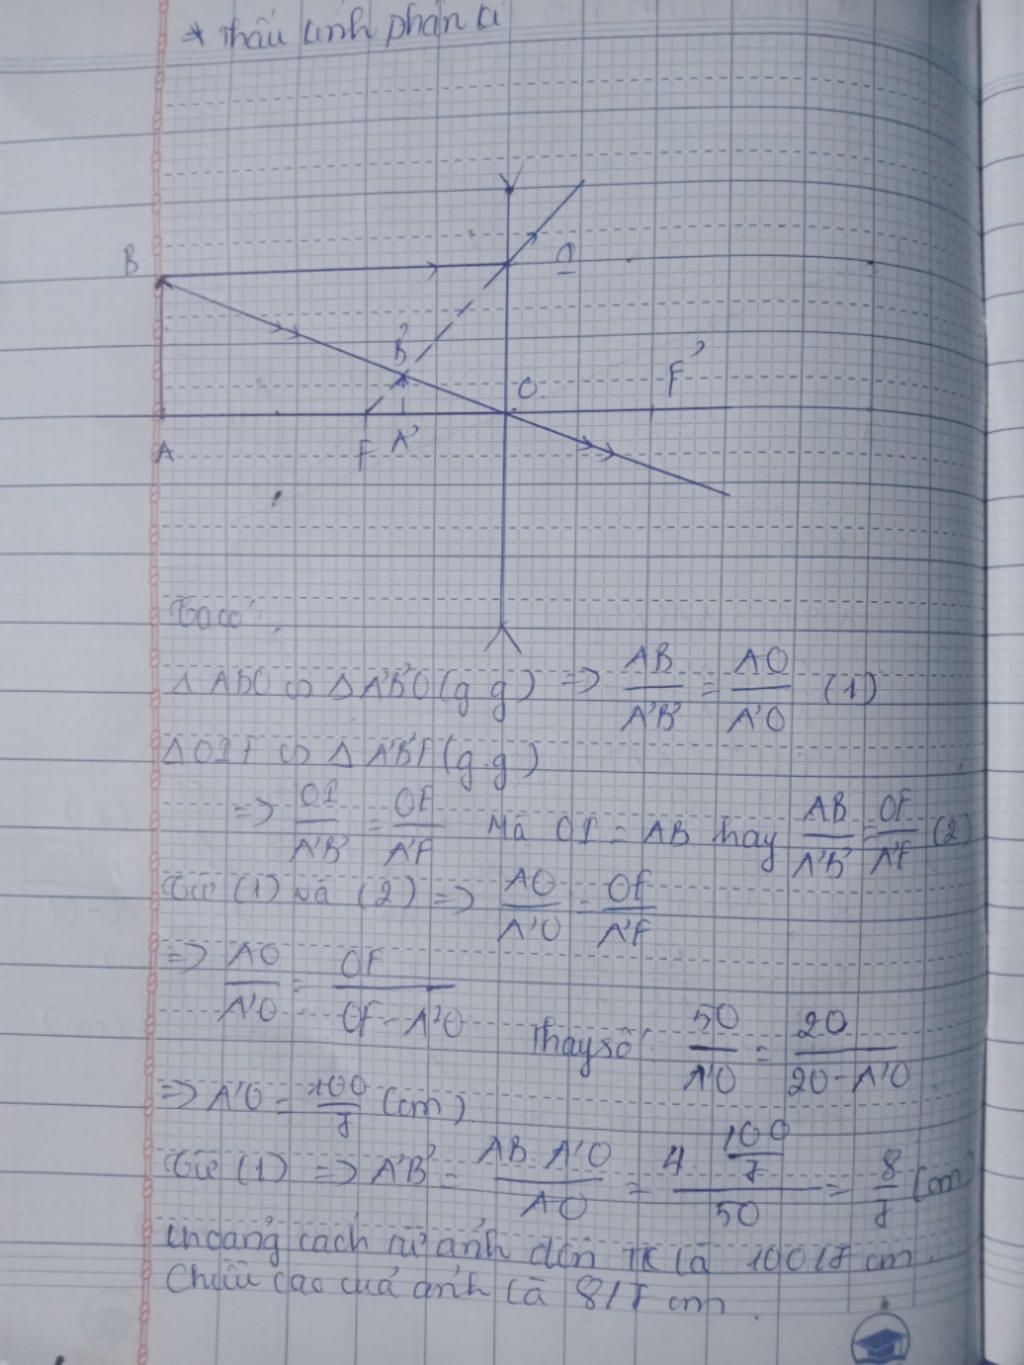 * Thấu kính phân kì
B
I
B'
O
F'
A
F
A'
Ta có:
Δ ABO ∽ Δ A'B'O (g.g) => AB/A'B' = AO/A'O (1)
Δ OIF ∽ Δ A'B'F (g.g)
=> OI/A'B' = OF/A'F Mà OI = AB hay AB/A'B' = OF/A'F (2)
Từ (1) và (2) => AO/A'O = OF/A'F
=> AO/A'O = OF/OF - A'O
Thay số: 50/A'O = 20/20 - A'O
=> A'O = 100/7 (cm)
Từ (1) => A'B' = AB. A'O/AO = 4. 100/7/50 = 8/7 (cm)
Khoảng cách từ ảnh đến TK là 100/7 cm.
Chiều cao của ảnh là 8/7 cm.